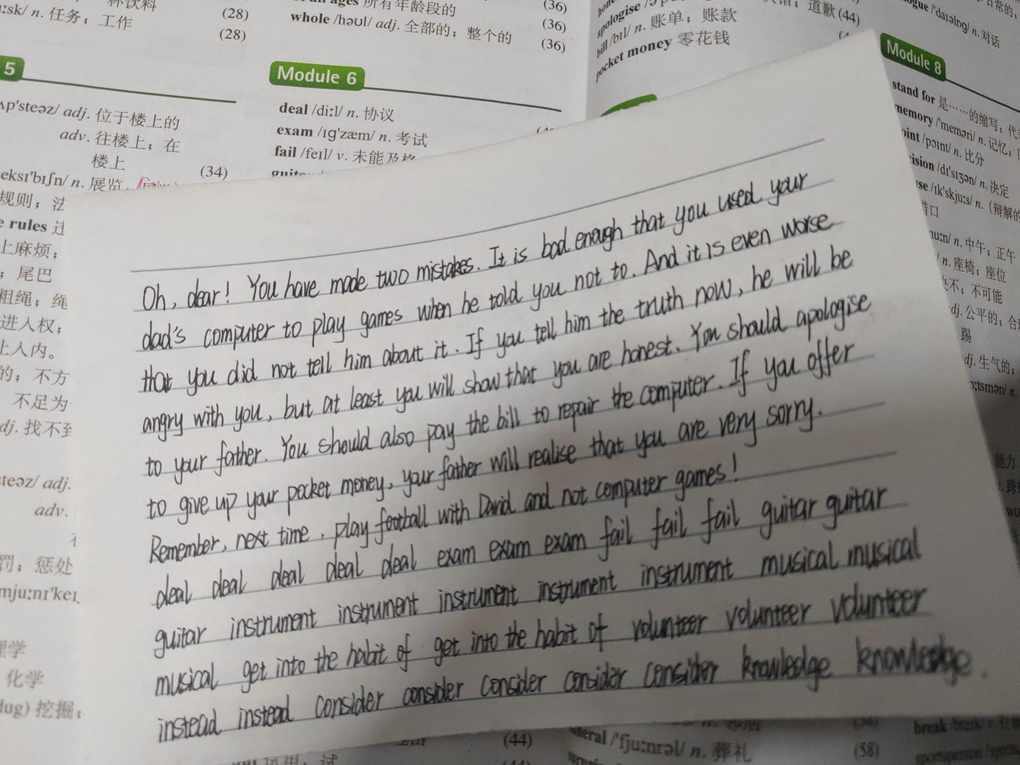 杯饮料
:sk/ n. 任务；工作 (28)
(28)
5
ʌp'steəz/ adj. 位于楼上的
adv. 往楼上；在
楼上 (34)
eksɪ'bɪʃn/ n. 展览
规则；
e rules
上麻烦；
；尾巴
进入权；
上入内。
的；不方
不足为
dj. 找不到
steəz/ adj.
adv.
罚；惩处
mjuːnɪ'keɪ
理学
化学
dug) 挖掘；
ages 所有年龄段的 (36)
whole /həʊl/ adj. 全部的；整个的 (36)
(36)
Module 6
deal /diːl/ n. 协议
exam /ɪg'zæm/ n. 考试
fail /feɪl/ v. 未能及格
apologise 道歉 (44)
bill /bɪl/ n. 账单；账款
pocket money 零花钱
logue /'daɪəlɒg/ n. 对话
Module 8
stand for 是……的缩写；代
memory /'meməri/ n. 记忆；
oint /pɔɪnt/ n. 比分
ision /dɪ'sɪʒən/ n. 决定
se /ɪk'skjuːs/ n. (辩解的
借口
uːn/ n. 中午；正午
n. 座椅；座位
不；不可能
dj. 公平的；合
dj. 生气的；
Oh, dear! You have made two mistakes. It is bad enough that you used your
dad's computer to play games when he told you not to. And it is even worse
that you did not tell him about it. If you tell him the truth now, he will be
angry with you, but at least you will show that you are honest. You should apologise
to your father. You should also pay the bill to repair the computer. If you offer
to give up your pocket money, your father will realise that you are very sorry.
Remember, next time, play football with David and not computer games!
deal deal deal deal deal exam exam exam fail fail fail guitar guitar
guitar instrument instrument instrument instrument instrument musical musical
musical get into the habit of get into the habit of volunteer volunteer volunteer
instead instead consider consider consider consider consider knowledge knowledge.
(44)
neral /'fjuːnrəl/ n. 葬礼
(58)
break /breɪk/